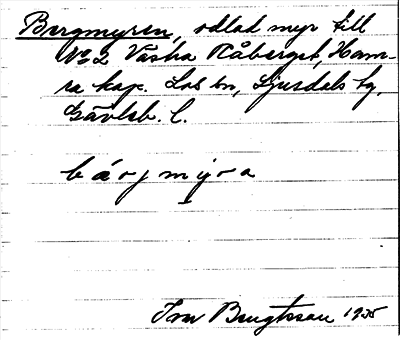 Bergmyren, odlad myr till
No 2 Västra Råberget, Ham-
ra kap. Los sn, Ljusdals tg,
Gävleb. l.
bárjmýra
Ivar Bengtsson 1935